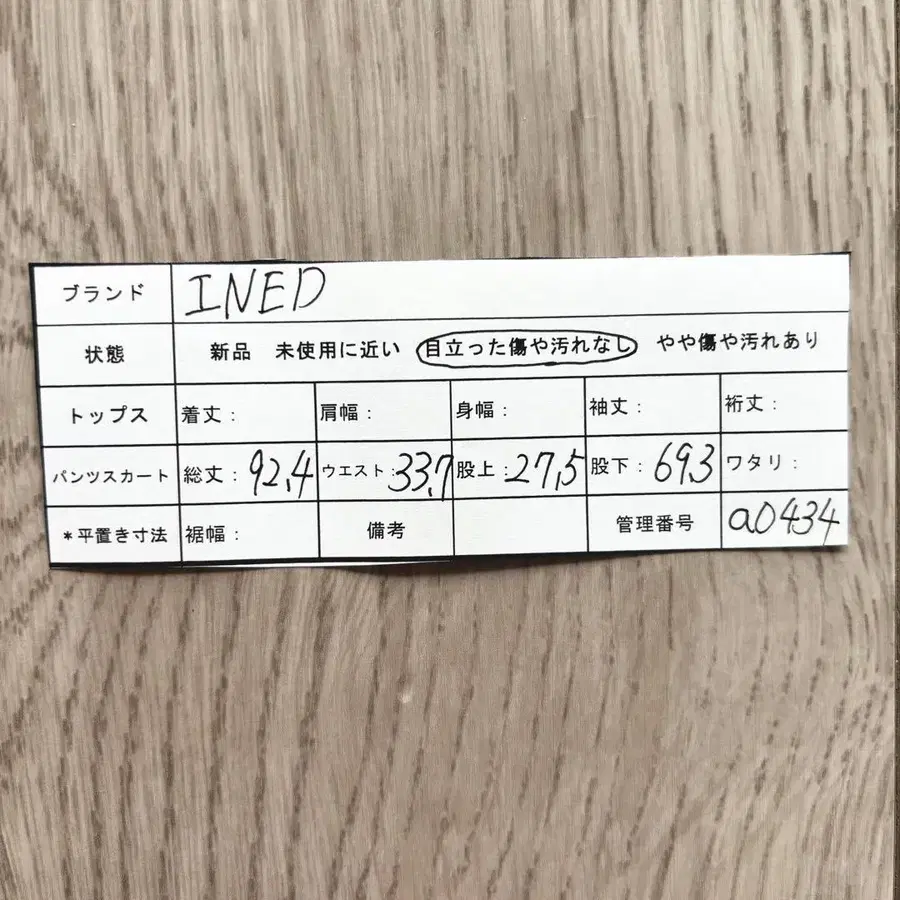 ブランド INED
状態 新品 未使用に近い 目立った傷や汚れなし やや傷や汚れあり
トップス 着丈: 肩幅: 身幅: 袖丈: 裄丈:
パンツスカート 総丈: 92,4 ウエスト: 33,7 股上: 27,5 股下: 69,3 ワタリ:
*平置き寸法 裾幅: 備考 管理番号 a0434